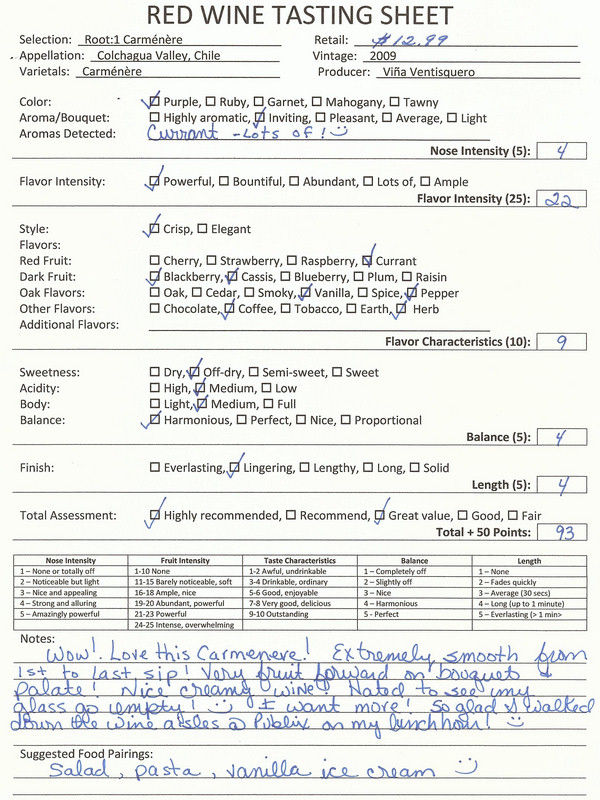 RED WINE TASTING SHEET
Selection: Root:1 Carménère Retail: $12.99
Appellation: Colchagua Valley, Chile Vintage: 2009
Varietals: Carménère Producer: Viña Ventisquero
Color: ☑ Purple, ☐ Ruby, ☐ Garnet, ☐ Mahogany, ☐ Tawny
Aroma/Bouquet: ☐ Highly aromatic, ☑ Inviting, ☐ Pleasant, ☐ Average, ☐ Light
Aromas Detected: Currant - Lots of! :)
Nose Intensity (5): 4
Flavor Intensity: ☑ Powerful, ☐ Bountiful, ☐ Abundant, ☐ Lots of, ☐ Ample
Flavor Intensity (25): 22
Style: ☑ Crisp, ☐ Elegant
Flavors:
Red Fruit: ☐ Cherry, ☐ Strawberry, ☐ Raspberry, ☑ Currant
Dark Fruit: ☑ Blackberry, ☑ Cassis, ☐ Blueberry, ☐ Plum, ☐ Raisin
Oak Flavors: ☐ Oak, ☐ Cedar, ☐ Smoky, ☑ Vanilla, ☐ Spice, ☑ Pepper
Other Flavors: ☐ Chocolate, ☑ Coffee, ☐ Tobacco, ☐ Earth, ☑ Herb
Additional Flavors:
Flavor Characteristics (10): 9
Sweetness: ☐ Dry, ☑ Off-dry, ☐ Semi-sweet, ☐ Sweet
Acidity: ☐ High, ☑ Medium, ☐ Low
Body: ☐ Light, ☑ Medium, ☐ Full
Balance: ☑ Harmonious, ☐ Perfect, ☐ Nice, ☐ Proportional
Balance (5): 4
Finish: ☐ Everlasting, ☑ Lingering, ☐ Lengthy, ☐ Long, ☐ Solid
Length (5): 4
Total Assessment: ☑ Highly recommended, ☐ Recommend, ☑ Great value, ☐ Good, ☐ Fair
Total + 50 Points: 93
Nose Intensity Fruit Intensity Taste Characteristics Balance Length
1 – None or totally off 1-10 None 1-2 Awful, undrinkable 1 – Completely off 1 – None
2 – Noticeable but light 11-15 Barely noticeable, soft 3-4 Drinkable, ordinary 2 – Slightly off 2 – Fades quickly
3 – Nice and appealing 16-18 Ample, nice 5-6 Good, enjoyable 3 – Nice 3 – Average (30 secs)
4 – Strong and alluring 19-20 Abundant, powerful 7-8 Very good, delicious 4 – Harmonious 4 – Long (up to 1 minute)
5 – Amazingly powerful 21-23 Powerful 9-10 Outstanding 5 - Perfect 5 – Everlasting (> 1 min>
24-25 Intense, overwhelming
Notes:
Wow! Love this Carmenere! Extremely smooth from
1st to last sip! Very fruit forward on bouquet &
palate! Nice creamy wine! Hated to see my
glass go empty! :) I want more! So glad I walked
down the wine aisles @ Publix on my lunch hour! :)
Suggested Food Pairings:
Salad, pasta, vanilla ice cream :)